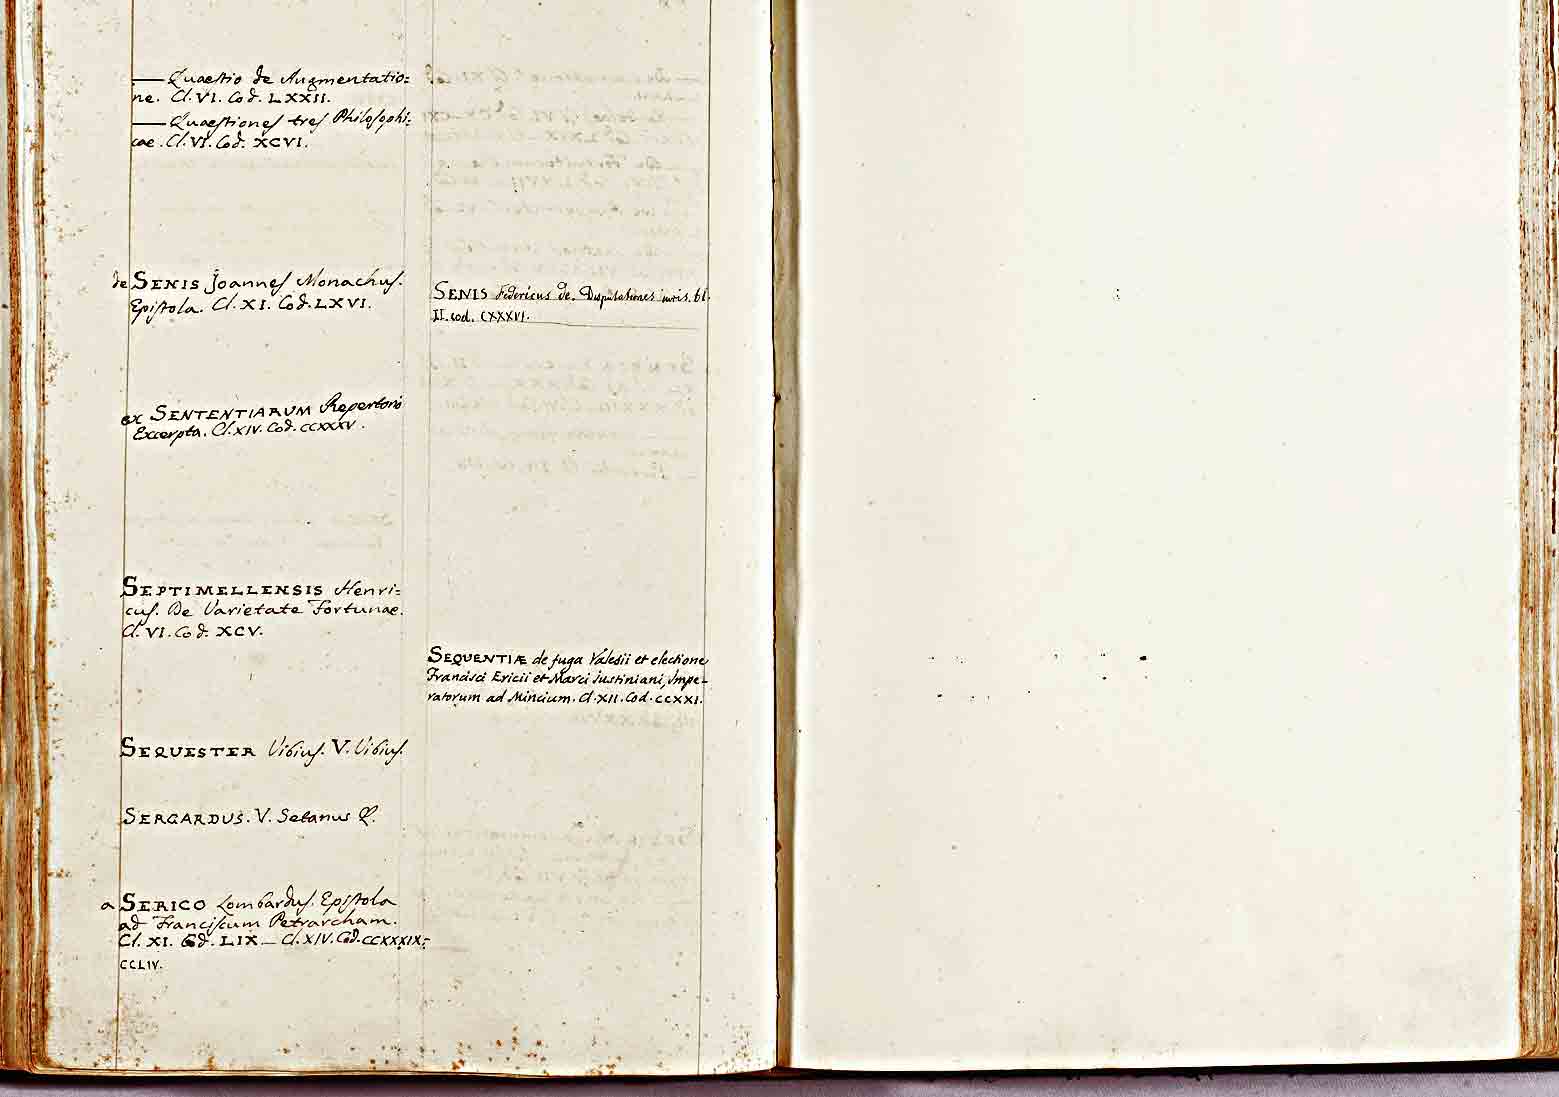 — Quaestio de Augmentatio=
ne. Cl. VI. Cod. LXXII.
— Quaestiones tres Philosophi=
cae. Cl. VI. Cod. XCVI.
de SENIS Joannes Monachus.
Epistola. Cl. XI. Cod. LXVI.
ex SENTENTIARUM Repertorio
Excerpta. Cl. XIV. Cod. CCXXXV.
SEPTIMELLENSIS Henri=
cus. De Varietate Fortunae.
Cl. VI. Cod. XCV.
SEQUESTER Vibius. V. Vibius.
SERGARDUS. V. Setanus Q.
a SERICO Lombardus. Epistola
ad Franciscum Petrarcham.
Cl. XI. Cod. LIX — Cl. XIV. Cod. CCXXXIX-
CCLIV.
SENIS Federicus de. Disputationes iuris. Cl.
II. cod. CXXXVI.
SEQUENTIÆ de fuga Valesii et electione
Francisci Ericii et Marci Iustiniani, Impe-
ratorum ad Mincium. Cl. XII. Cod. CCXXI.